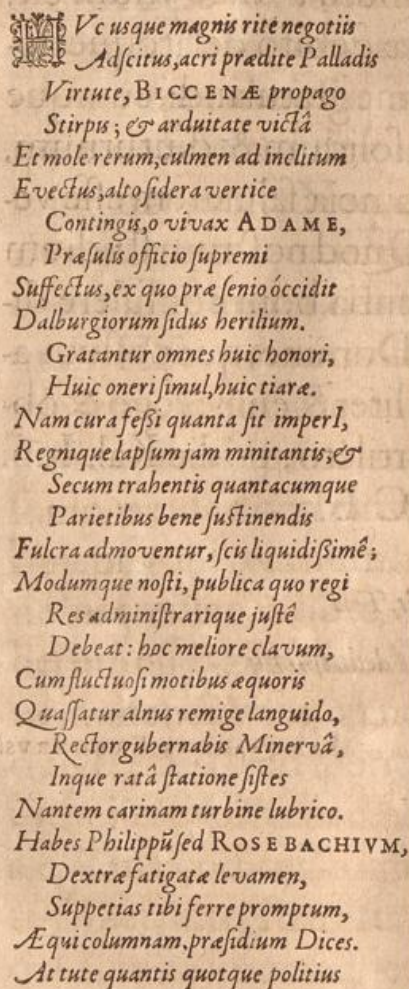 HVc usque magnis rite negotiis
Adſcitus, acri prædite Palladis
Virtute, BICCENÆ propago
Stirpis; & arduitate victâ
Et mole rerum, culmen ad inclitum
Evectus, alto ſidera vertice
Contingis, o vivax ADAME,
Præſulis officio ſupremi
Suffectus, ex quo præ ſenio óccidit
Dalburgiorum ſidus herilium.
Gratantur omnes huic honori,
Huic oneri ſimul, huic tiaræ.
Nam cura feſsi quanta ſit imperI,
Regnique lapſum jam minitantis, &
Secum trahentis quantacumque
Parietibus bene ſuſtinendis
Fulcra admoventur, ſcis liquidiſsimê;
Modumque noſti, publica quo regi
Res adminiſtrarique juſtê
Debeat: hoc meliore clavum,
Cum fluctuoſi motibus æquoris
Quaſſatur alnus remige languido,
Rector gubernabis Minervâ,
Inque ratâ ſtatione ſiſtes
Nantem carinam turbine lubrico.
Habes Philippũ ſed ROSEBACHIVM,
Dextræ fatigatæ levamen,
Suppetias tibi ferre promptum,
Æqui columnam, præſidium Dices.
At tute quantis quotque politius